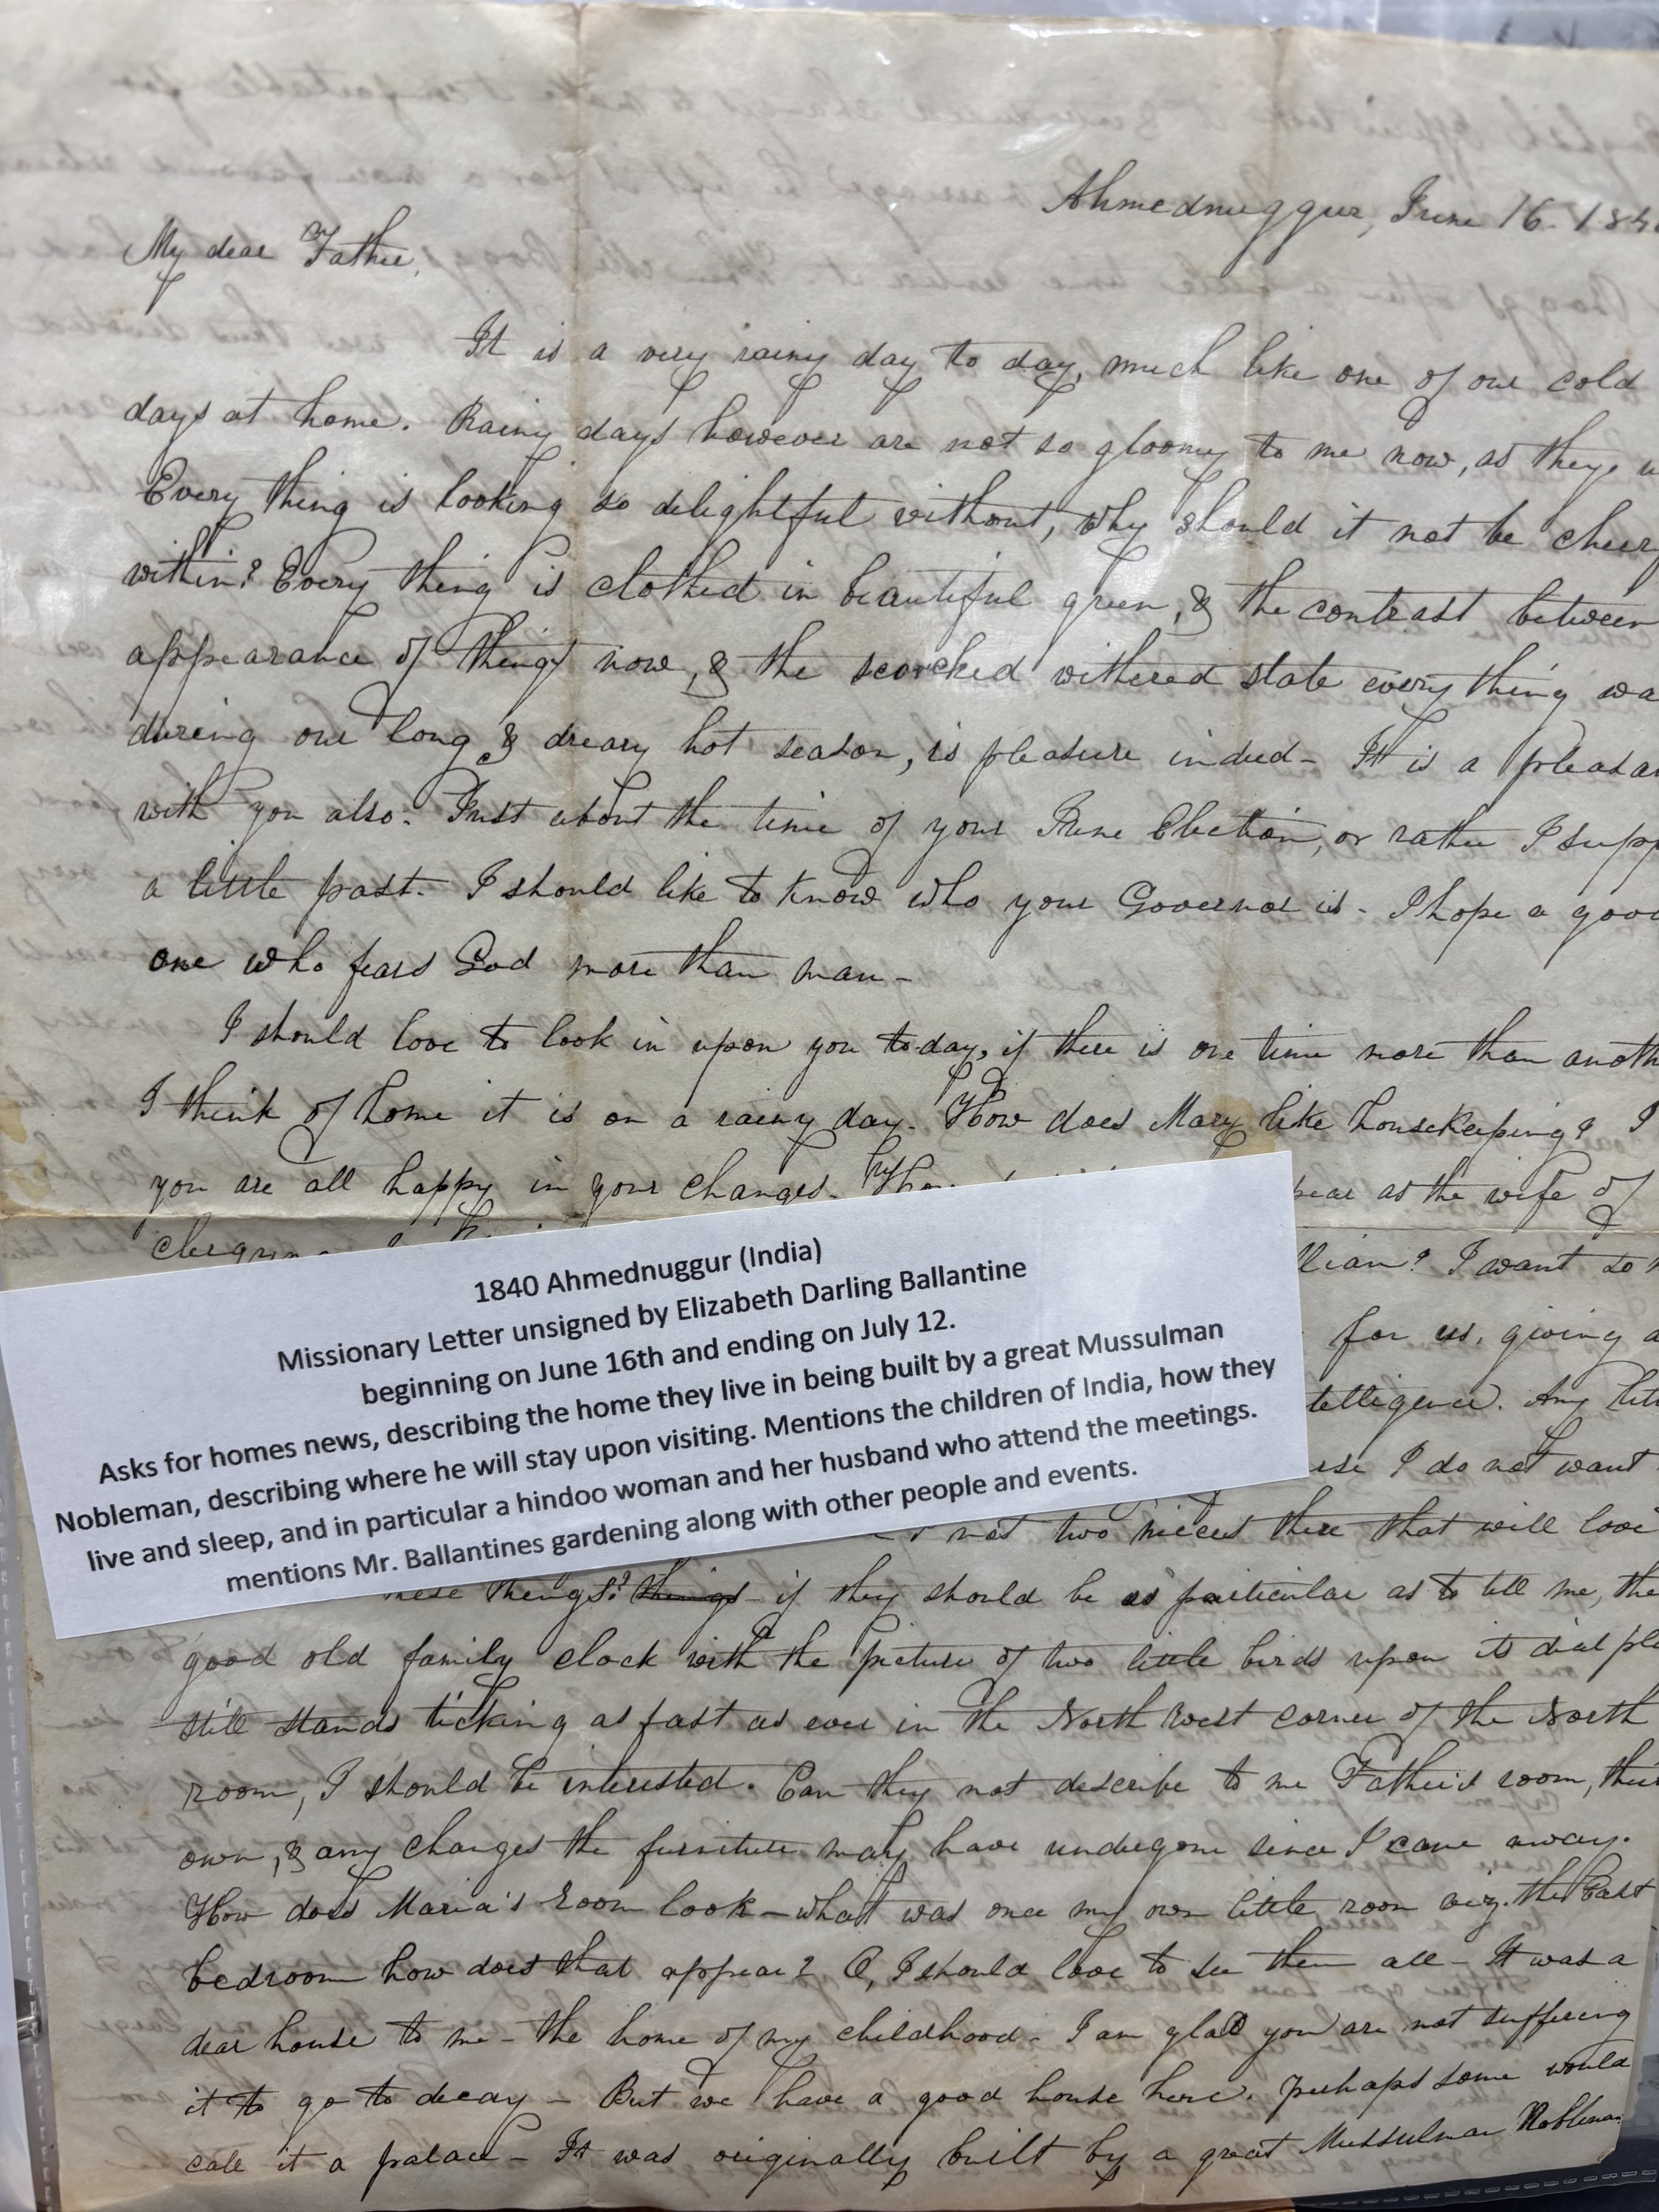 Ahmednuggur, June 16. 184
My dear Father,
It is a very rainy day to day, much like one of our cold
days at home. Rainy days however are not so gloomy to me now, as they
Every thing is looking so delightful without, why should it not be cheer
within? Every thing is clothed in beautiful green, & the contrast between
appearance of things now, & the scorched withered state every thing wa
during our long & dreary hot season, is pleasure indeed - It is a pleasan
with you also. Just about the time of your June Election, or rather I supp
a little past. I should like to know who your Governor is - I hope a good
one who fears God more than man -
I should love to look in upon you today, if there is one time more than anoth
I think of home it is on a rainy day. How does Mary like housekeeping? I
you are all happy in your changes. pear as the wife of
llian? I want to
1840 Ahmednuggur (India)
Missionary Letter unsigned by Elizabeth Darling Ballantine
beginning on June 16th and ending on July 12.
Asks for homes news, describing the home they live in being built by a great Mussulman
Nobleman, describing where he will stay upon visiting. Mentions the children of India, how they
live and sleep, and in particular a hindoo woman and her husband who attend the meetings.
mentions Mr. Ballantines gardening along with other people and events.
for us, giving a
telligence. Any
I do not want
not two nieces there that will love
these things? things if they should be as particular as to tell me, the
good old family clock with the picture of two little birds upon its dial pl
still stands ticking as fast as ever in the North West corner of the North
room, I should be interested. Can they not describe to me Father's room, their
own, & any changes the furniture may have undergone since I came away.
How does Maria's room look - what was once my own little room viz. the East
bedroom how does that appear? O, I should love to see them all - It was a
dear house to me - the home of my childhood - I am glad you are not suffering
it to go to decay - But we have a good house here. perhaps some would
call it a palace - It was originally built by a great Mussulman Nobleman